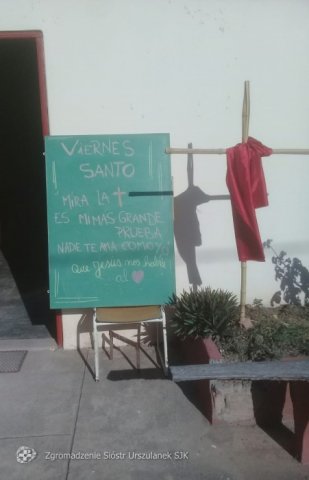 VIERNES
SANTO
MIRA LA ✝
ES MI MAS GRANDE
PRUEBA
NADIE TE AMA COMO YO
que Jesus nos hable
al ♥
Zgromadzenie Sióstr Urszulanek SJK